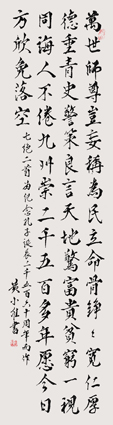 萬世師尊豈妄稱為民立命骨錚々寬仁厚
德垂青史警策良言天地驚富貴貧窮一視
同誨人不倦九州崇二千五百多年愿今日
方欣免落空
七絕二首為紀念孔子誕辰二千五百六十周年而作